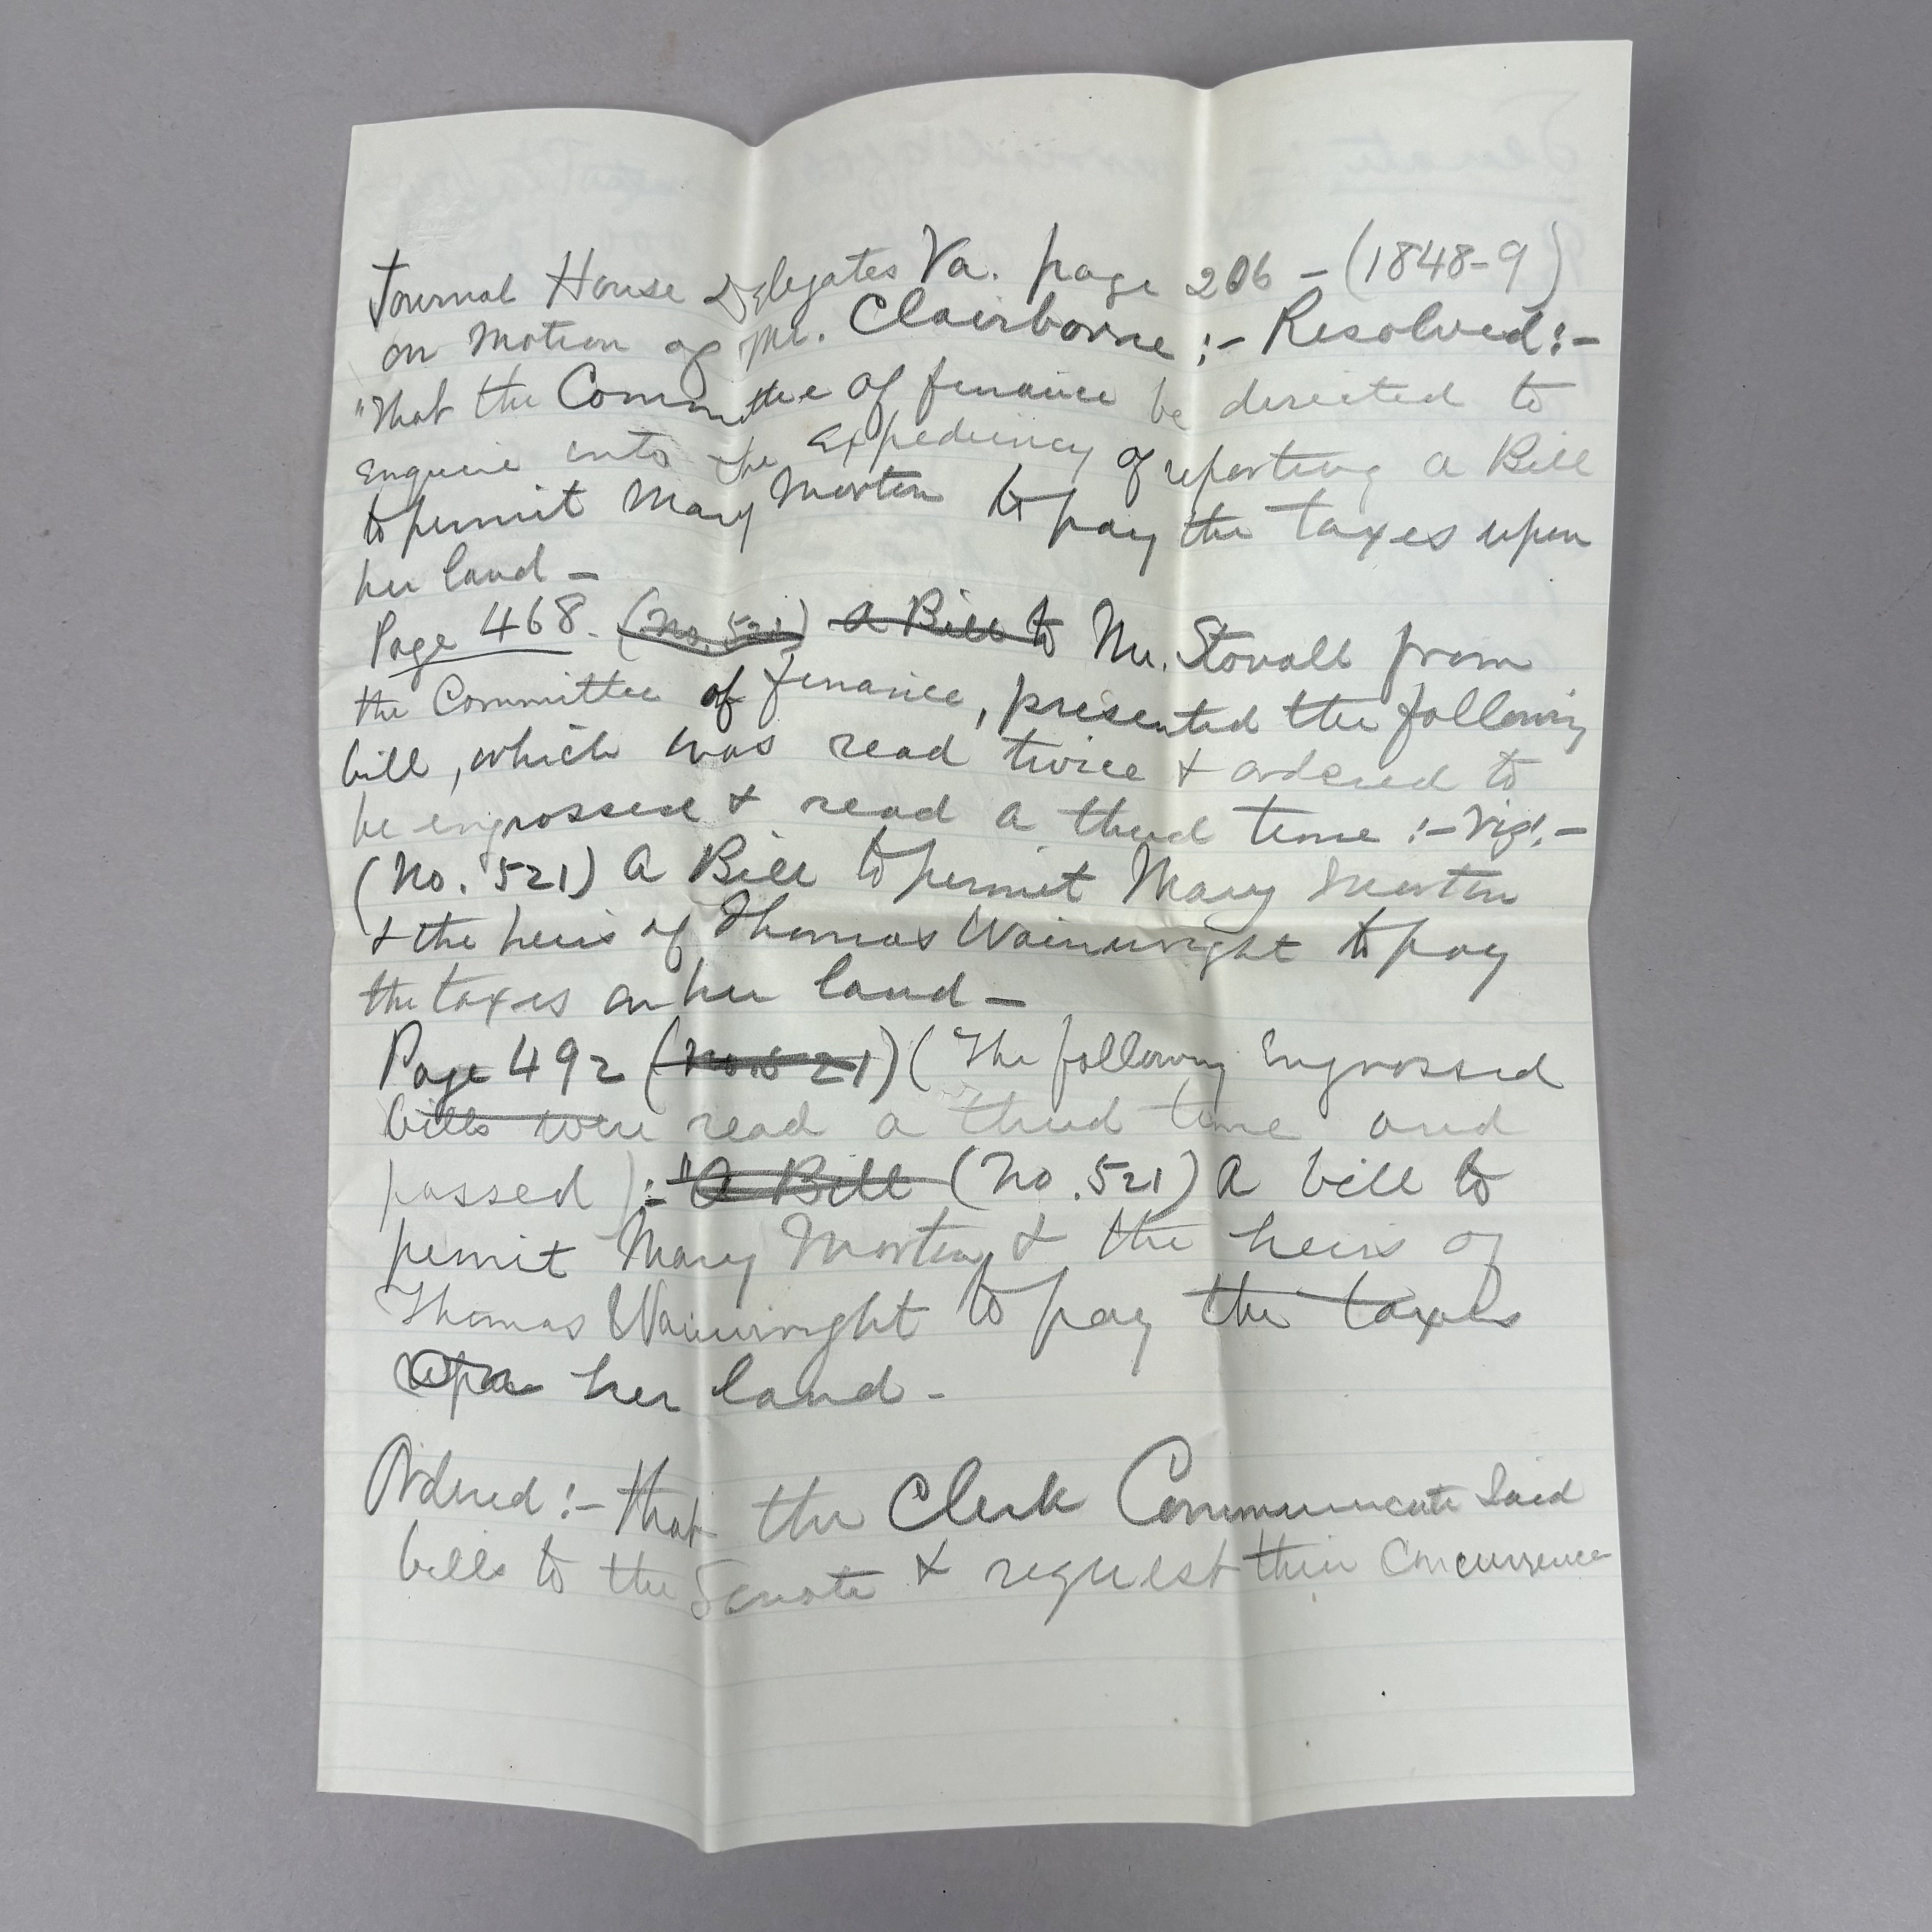 Journal House Delegates Va. page 206 - (1848-9)
on motion of Mr. Clairborne :- Resolved:-
"That the Committee of finance be directed to
enquire into the expediency of reporting a Bill
to permit Mary Morton to pay the taxes upon
her land -
Page 468. (No. 521) a Bill to Mr. Stovall from
the Committee of finance, presented the following
bill, which was read twice & ordered to
be engrossed & read a third time :- Viz:-
(No. 521) A Bill to permit Mary Morton
& the heirs of Thomas Wainwright to pay
the taxes on her land -
Page 492 (No. 521) (The following Engrossed
bills were read a third time and
passed):- "A Bill (No. 521) A bill to
permit Mary Morton & the heirs of
Thomas Wainwright to pay the taxes
upon her land -
Ordered :- That the Clerk Communicate Said
bills to the Senate & request their Concurrence